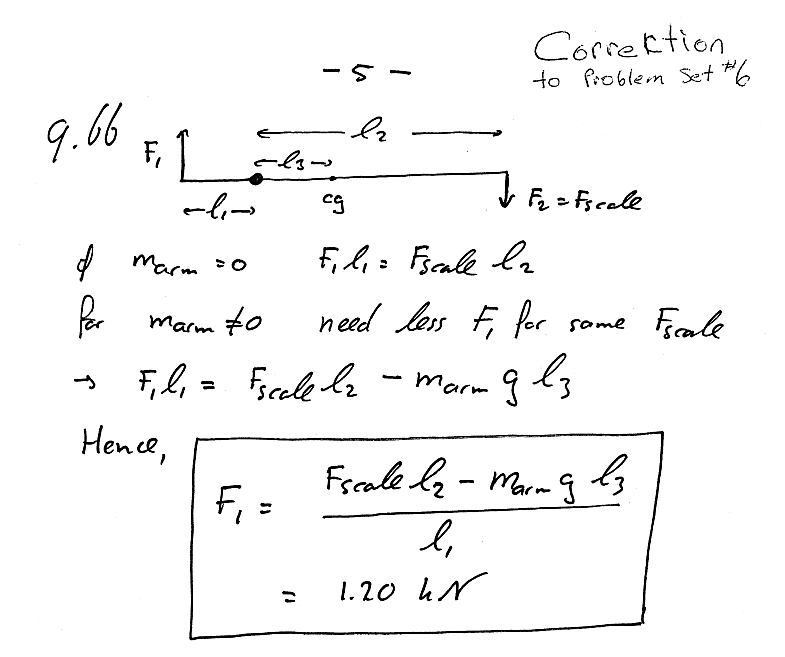 Correktion
to Problem Set #6
- 5 -
9.66
F₁
l₂
l₃
l₁
cg
F₂ = Fscale
if marm = 0 F₁ l₁ = Fscale l₂
for marm ≠ 0 need less F₁ for same Fscale
→ F₁ l₁ = Fscale l₂ - marm g l₃
Hence,
F₁ = Fscale l₂ - marm g l₃
l₁
= 1.20 kN